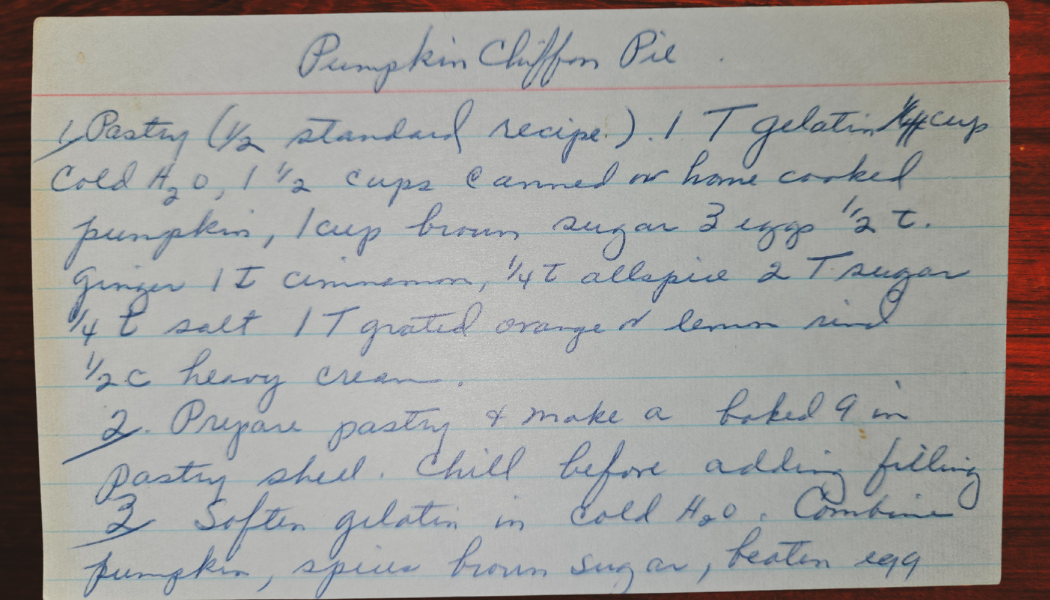 Pumpkin Chiffon Pie
1. Pastry (1/2 standard recipe.). 1 T gelatin 1/4 cup
Cold H2O, 1 1/2 cups canned or home cooked
pumpkin, 1 cup brown sugar 3 eggs 1/2 t.
Ginger 1 t cinnemon, 1/4 t allspice 2 T sugar
1/4 t salt 1 T grated orange or lemon rind
1/2 c heavy cream.
2. Prepare pastry & make a baked 9 in
pastry shell. Chill before adding filling
3 Soften gelatin in cold H2O. Combine
pumpkin, spices brown sugar, beaten egg